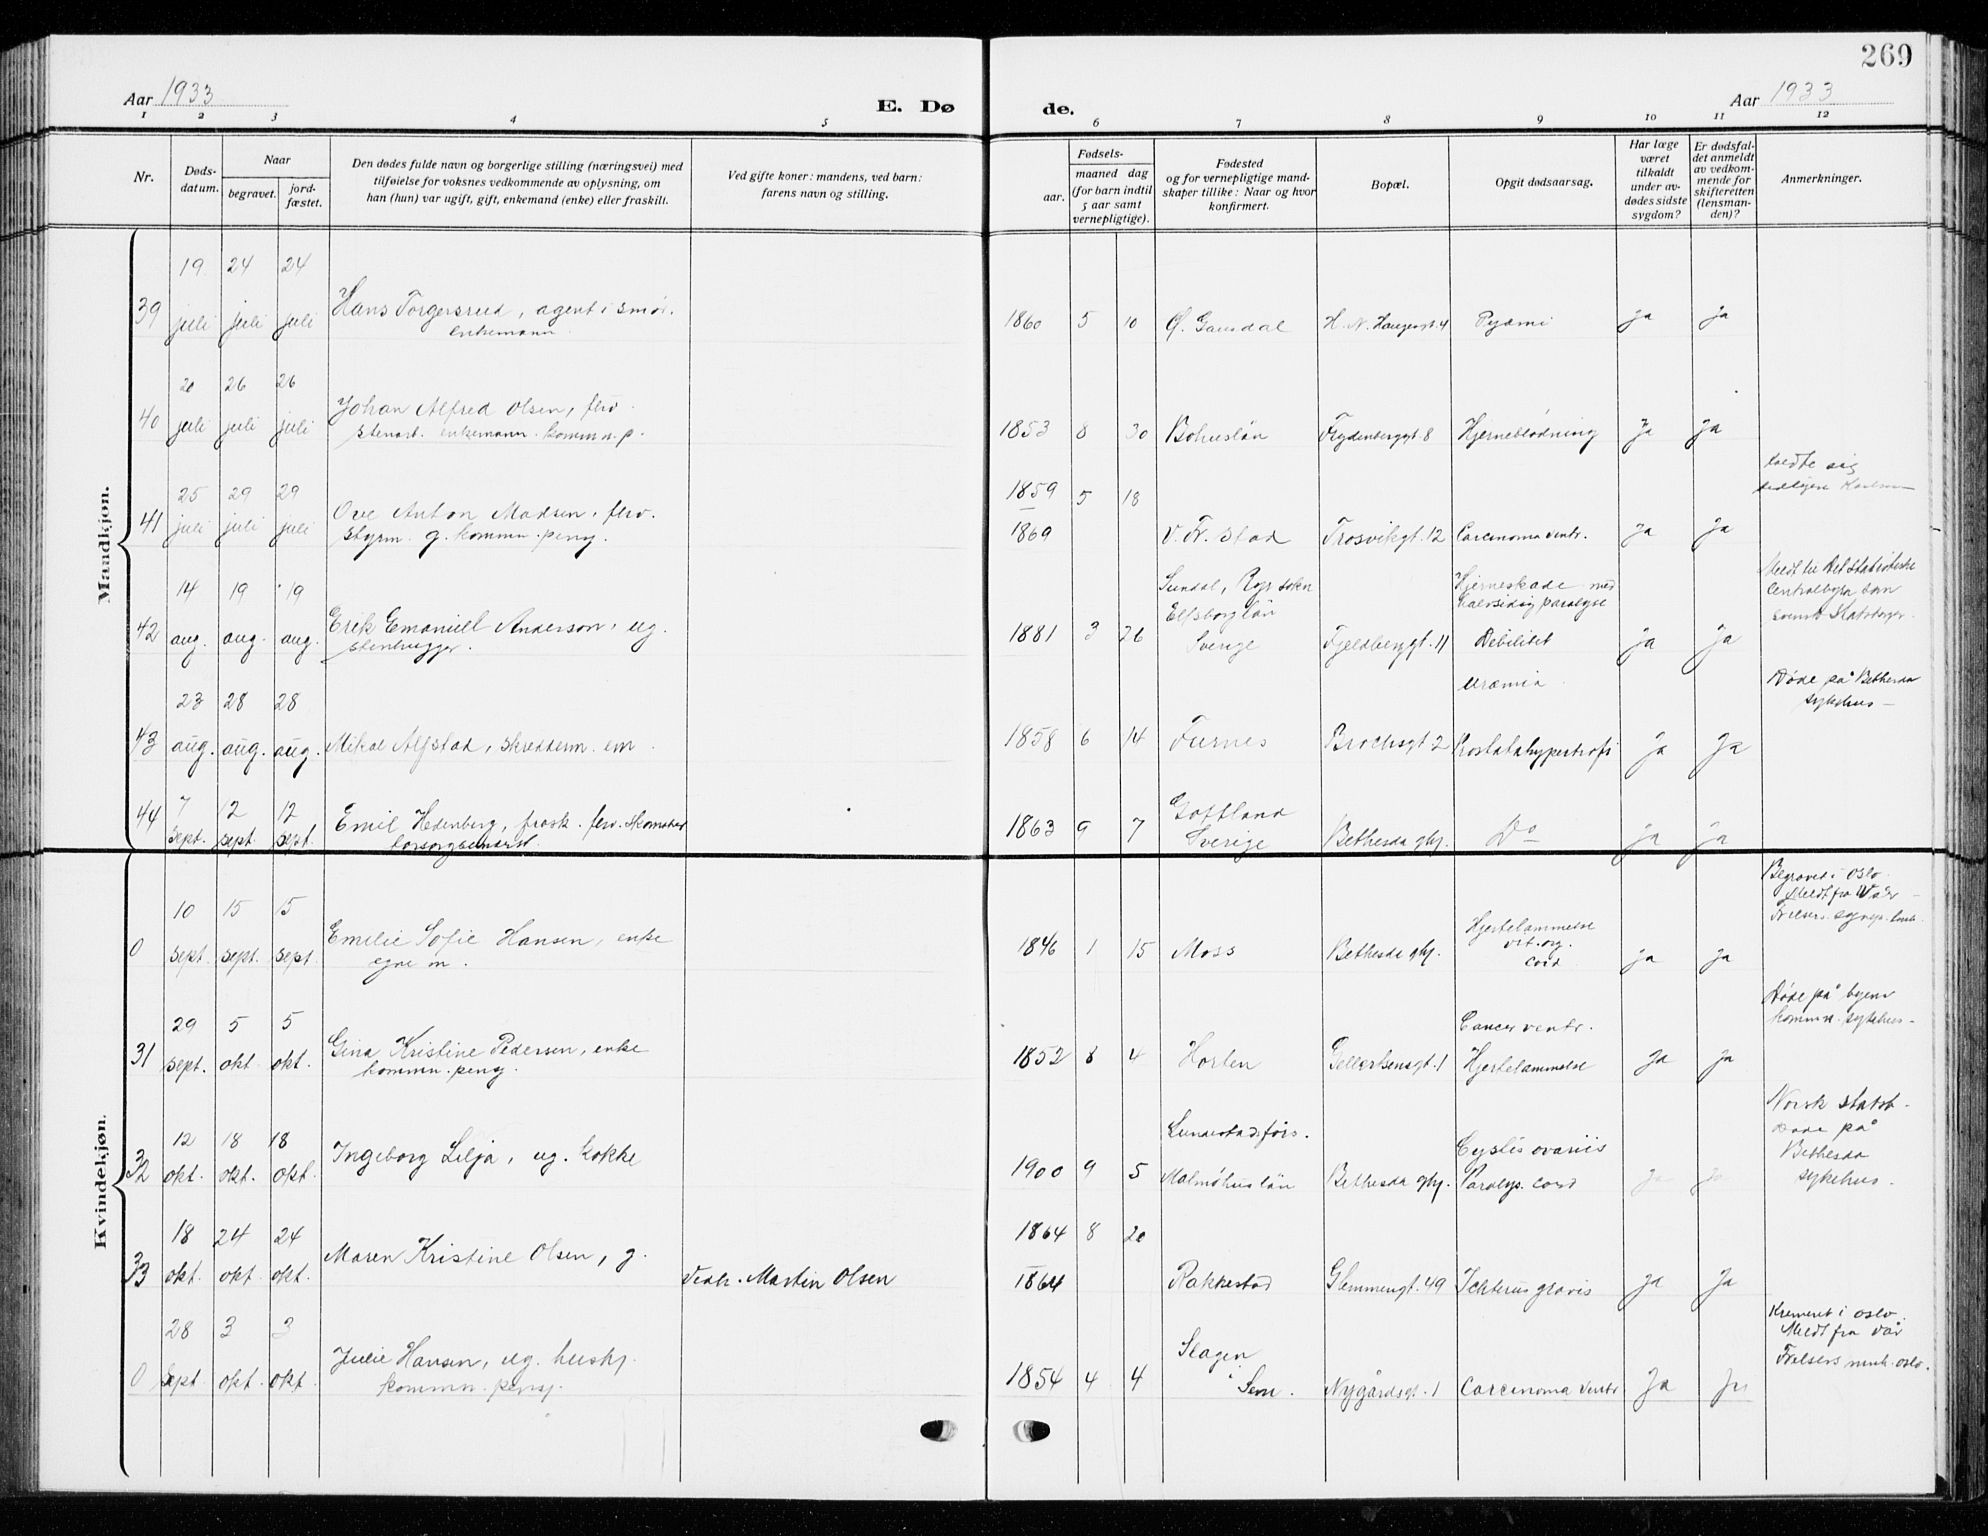 269
Aar 1933
E. Dø
de.
Aar 1933
1 2 3 4 5 6 7 8 9 10 11 12
Nr.
Døds-
datum.
Naar
begravet.
jord-
fæstet.
Den dødes fulde navn og borgerlige stilling (næringsvei) med
tilføielse for voksnes vedkommende av oplysning, om
han (hun) var ugift, gift, enkemand (enke) eller fraskilt.
Ved gifte koner: mandens, ved barn:
farens navn og stilling.
Fødsels-
aar.
maaned dag
(for barn indtil
5 aar samt
vernepligtige).
Fødested
og for vernepligtige mand-
skaper tillike: Naar og hvor
konfirmert.
Bopæl.
Opgit dødsaarsag.
Har læge
været
tilkaldt
under av-
dødes sidste
sygdom?
Er dødsfal-
det anmeldt
av vedkom-
mende for
skifteretten
(lensman-
den)?
Anmerkninger.
Mandkjøn.
19 24 24
39 juli juli juli Hans Torgersrud, agent i smør. 1860 5 10 Ø. Gausdal H. N. Haugesgt. 4 Pyæmi ja ja
enkemann
20 26 26
40 juli juli juli Johan Alfred Olsen, fhv.
stenarb. enkemann. kommn. p. 1853 8 30 Bohuslän Frydenberggt. 8 Hjerneblødning ja ja
25 29 29 1859 5 18 kaldte sig
41 juli juli juli Ove Anton Madsen, fhv.
styrm. g. kommn. pensj. 1869 V. Fr. stad Trosvikgt. 12 Carcinoma ventr. ja ja
14 19 19 Sundal, Ryr sokn Hjerneskade med Meldt til Det Statistiske
Elfsborg län halvsidig paralyse Centralbyrå
42 aug. aug. aug. Erik Emanuel Anderson, ug.
stenhugger. 1881 3 26 Sverige Fjeldberggt. 11 Debilitet ja ja svensk Statsborger.
23 28 28 Uræmia Døde på Bethesda
sykehus
43 aug. aug. aug. Mikal Alfstad, skredderm. em. 1858 6 14 Furnes Brochsgt 2 Prostatahypertrofi ja ja
7 12 12 Gottland
44 sept. sept. sept. Emil Hedenberg, frask. fhv. skomaker 1863 9 7 Sverige Bethesda ghj. Do ja ja
Kvindekjøn.
10 15 15 Hjertelammelse Begravet i Oslo.
Meldt fra Vår
Frelsers
0 sept. sept. sept. Emilie Sofie Hansen, enke
egne m. 1846 1 15 Moss Bethesda ghj. vit. org.
cord ja ja
29 5 5 Cancer ventr. Døde på byens
kommn. sykehus
31 sept. okt. okt. Gina Kristine Pedersen, enke
kommn. pensj. 1852 8 4 Horten Gellertsensgt. 1 Hjertelammelse ja ja
12 18 18 Lundestadsförs. Cystis ovariis Norsk statsb.
Døde på
32 okt. okt. okt. Ingeborg Lilja, ug. kokke 1900 9 5 Malmöhus län Bethesda ghj. Paralys. cord ja ja Bethesda
sykehus.
18 24 24 1864 8 20
33 okt. okt. okt. Maren Kristine Olsen, g. Martin Olsen 1864 Rakkestad Glemmengt. 49 Ichterus gravis ja ja
28 3 3 Slagen Kremert i Oslo.
Meldt fra Vår
0 sept okt. okt. Julie Hansen, ug. hushj.
kommn. pensj. 1854 4 4 i Sem. Nygårdsgt. 1 Carcinoma ventr ja ja Frelsers menh. Oslo.